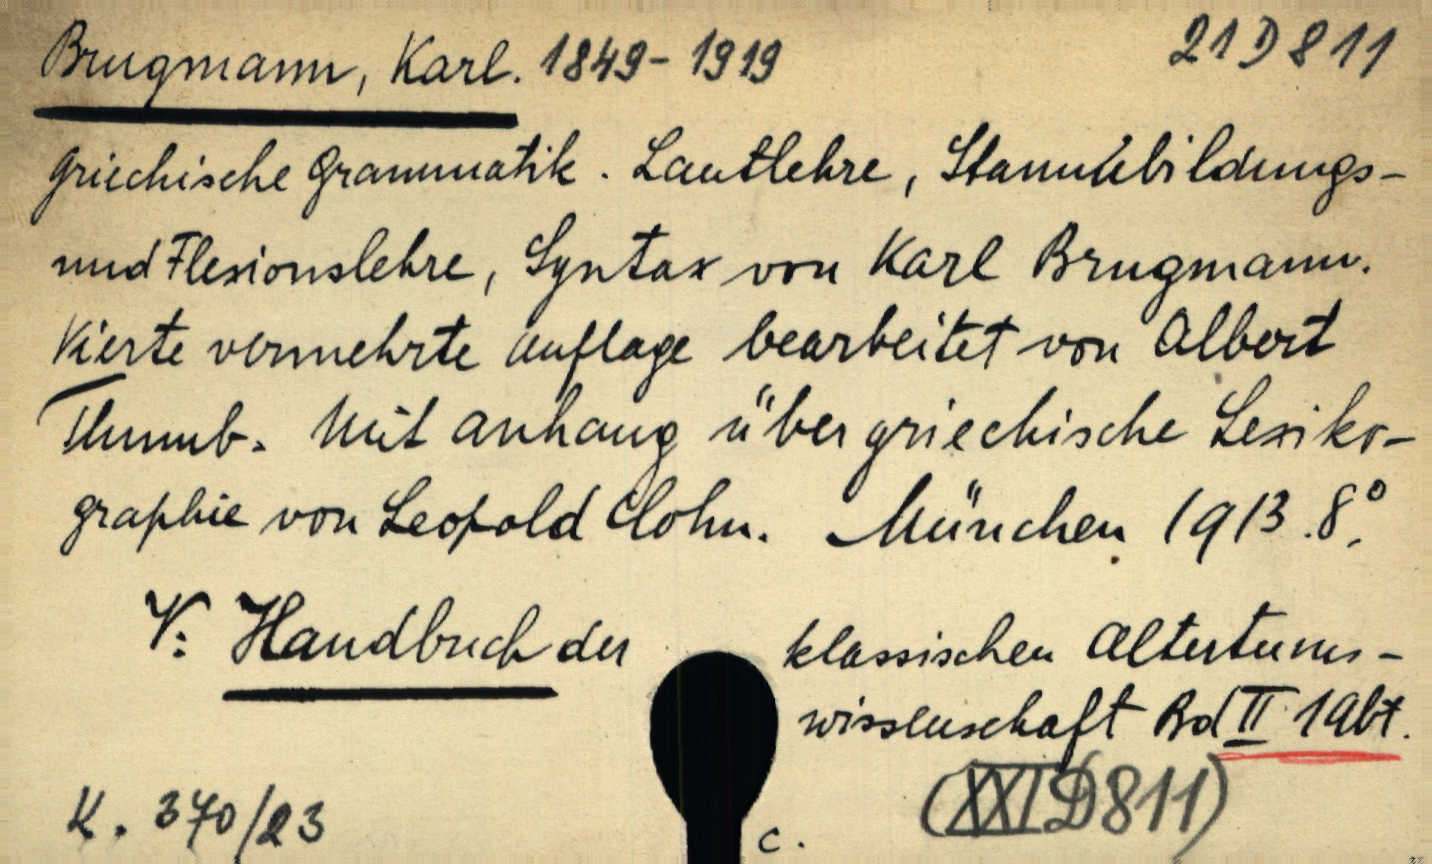 Brugmann, Karl. 1849-1919 21 D 811
Griechische Grammatik. Lautlehre, Stammbildungs-
und Flexionslehre, Syntax von Karl Brugmann.
Vierte vermehrte Auflage bearbeitet von Albert
Thumb. Mit Anhang über griechische Lexiko-
graphie von Leopold Cohn. München 1913. 8°.
V: Handbuch der klassischen Altertums-
wissenschaft Bd II 1 Abt.
(XXI D 811)
K. 370/23 c.